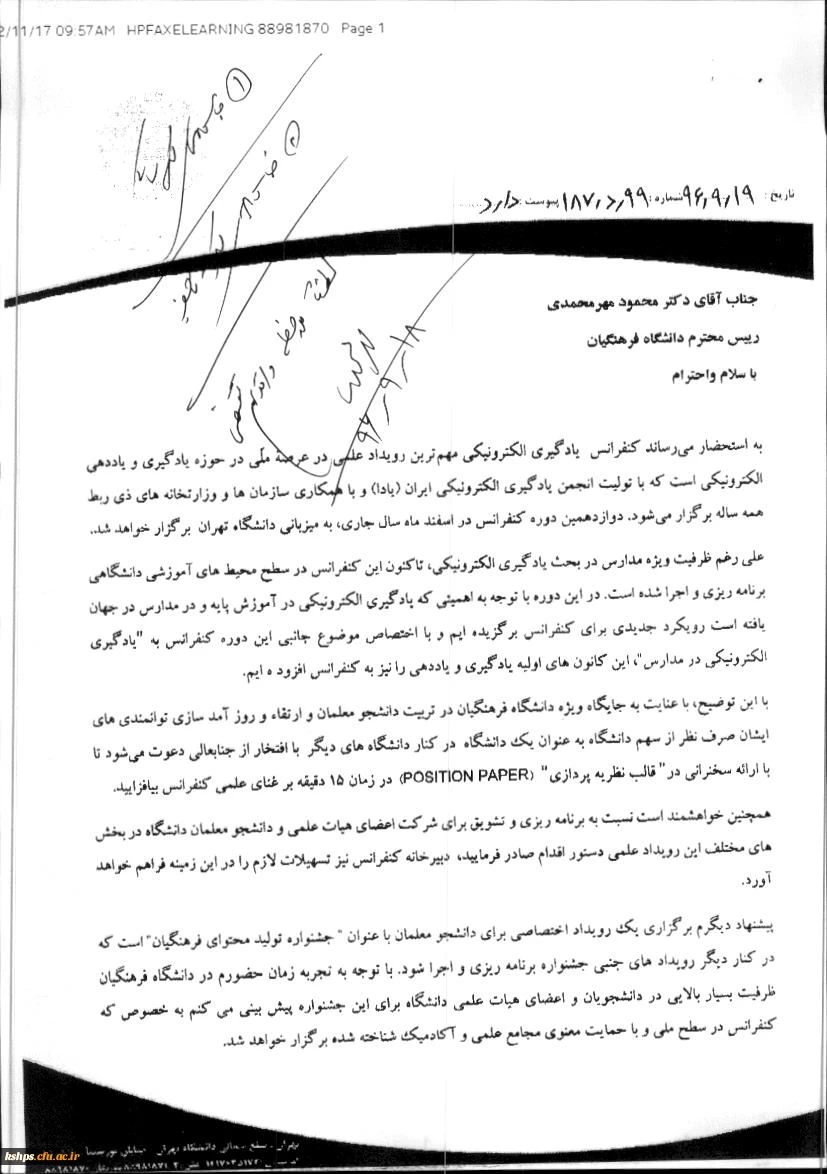 2/11/17 09:57AM HPFAXELEARNING 88981870 Page 1
تاریخ: ۹۶٫۹٫۱۹ شماره: ۱۸۷٫د٫۹۹ پیوست: دارد
جناب آقای دکتر محمود مهرمحمدی
رییس محترم دانشگاه فرهنگیان
با سلام واحترام
۹۶-۹-۱۸
به استحضار می‌رساند کنفرانس یادگیری الکترونیکی مهم‌ترین رویداد علمی در عرصهٔ ملّی در حوزه یادگیری و یاددهی
الکترونیکی است که با تولیت انجمن یادگیری الکترونیکی ایران (یادا) و با همکاری سازمان ها و وزارتخانه های ذی ربط
همه ساله برگزار می‌شود. دوازدهمین دوره کنفرانس در اسفند ماه سال جاری، به میزبانی دانشگاه تهران برگزار خواهد شد.
علی رغم ظرفیت ویژه مدارس در بحث یادگیری الکترونیکی، تاکنون این کنفرانس در سطح محیط های آموزشی دانشگاهی
برنامه ریزی و اجرا شده است. در این دوره با توجه به اهمیتی که یادگیری الکترونیکی در آموزش پایه و در مدارس در جهان
یافته است رویکرد جدیدی برای کنفرانس برگزیده ایم و با اختصاص موضوع جانبی این دوره کنفرانس به "یادگیری
الکترونیکی در مدارس"، این کانون های اولیه یادگیری و یاددهی را نیز به کنفرانس افزود ه ایم.
با این توضیح، با عنایت به جایگاه ویژه دانشگاه فرهنگیان در تربیت دانشجو معلمان و ارتقاء و روز آمد سازی توانمندی های
ایشان صرف نظر از سهم دانشگاه به عنوان یک دانشگاه در کنار دانشگاه های دیگر با افتخار از جنابعالی دعوت می‌شود تا
با ارائه سخنرانی در" قالب نظریه پردازی" (POSITION PAPER) در زمان ۱۵ دقیقه بر غنای علمی کنفرانس بیافزایید.
همچنین خواهشمند است نسبت به برنامه ریزی و تشویق برای شرکت اعضای هیات علمی و دانشجو معلمان دانشگاه در بخش
های مختلف این رویداد علمی دستور اقدام صادر فرمایید، دبیرخانه کنفرانس نیز تسهیلات لازم را در این زمینه فراهم خواهد
آورد.
پیشنهاد دیگرم برگزاری یک رویداد اختصاصی برای دانشجو معلمان با عنوان " جشنواره تولید محتوای فرهنگیان" است که
در کنار دیگر رویداد های جنبی جشنواره برنامه ریزی و اجرا شود. با توجه به تجربه زمان حضورم در دانشگاه فرهنگیان
ظرفیت بسیار بالایی در دانشجویان و اعضای هیات علمی دانشگاه برای این جشنواره پیش بینی می کنم به خصوص که
کنفرانس در سطح ملی و با حمایت معنوی مجامع علمی و آکادمیک شناخته شده برگزار خواهد شد.
kshps.cfu.ac.ir